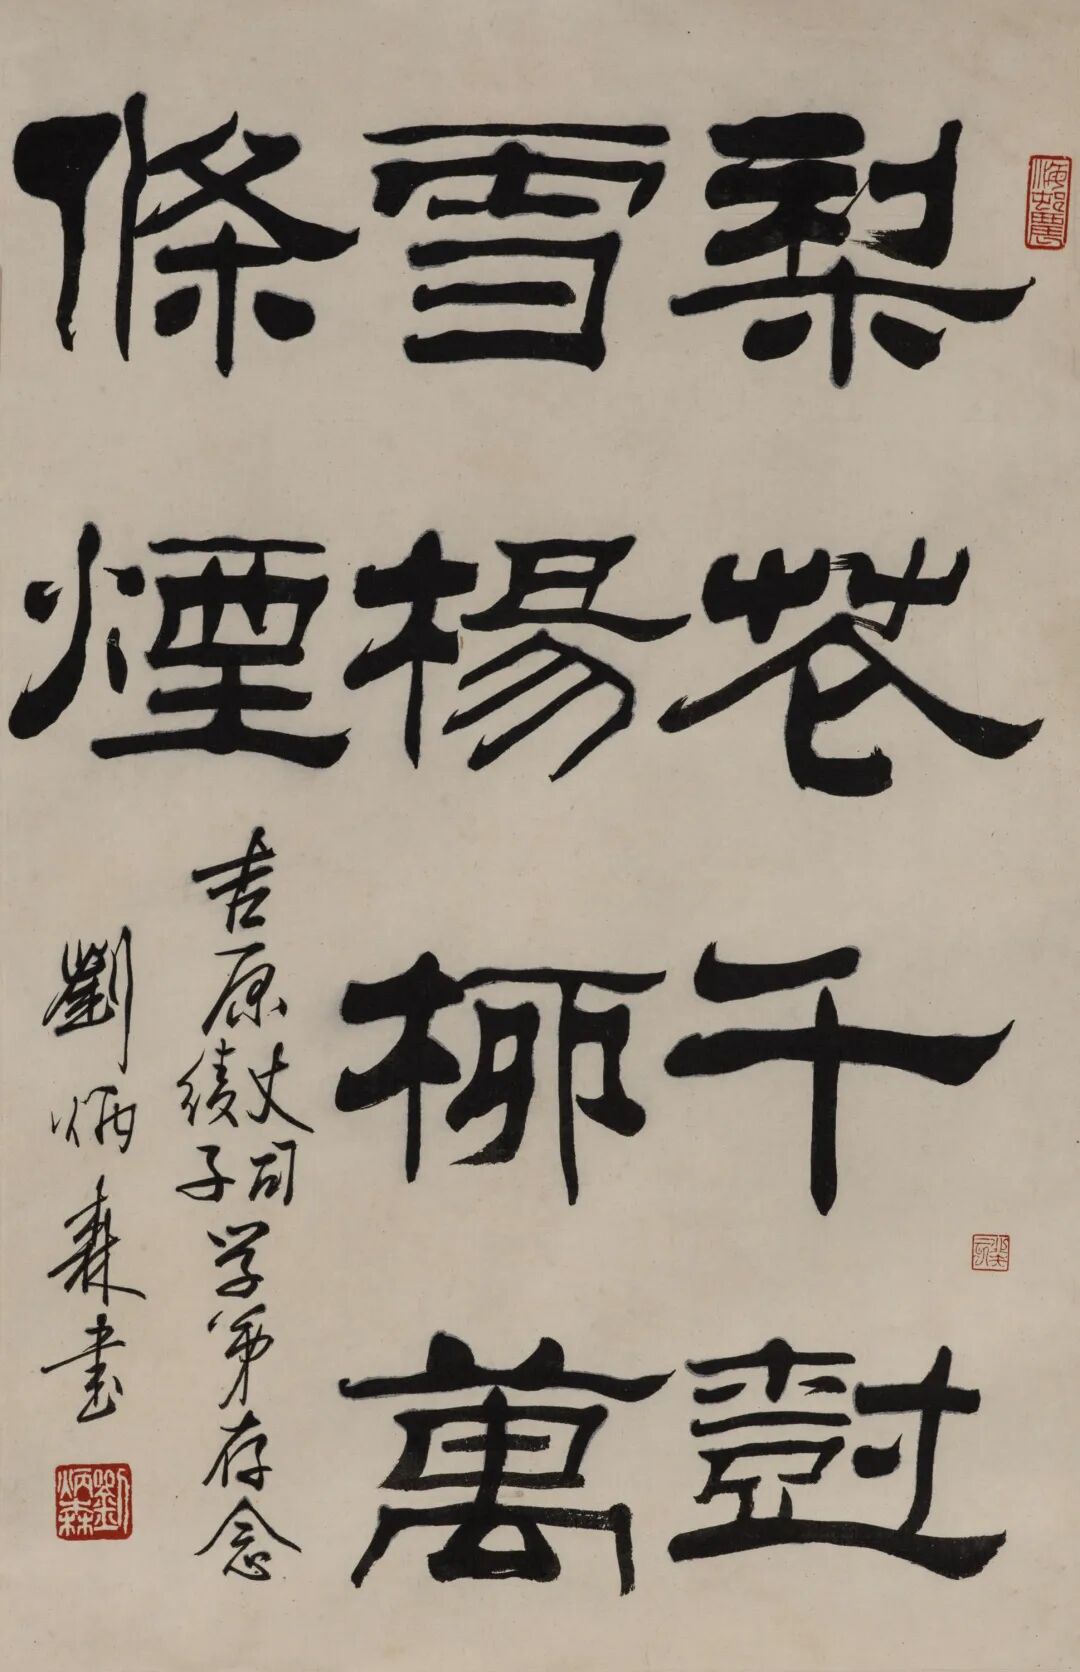 梨花千樹
雪楊柳萬
條煙
吉原丈司绩子学弟存念
劉炳森書
海邨農
劉炳森